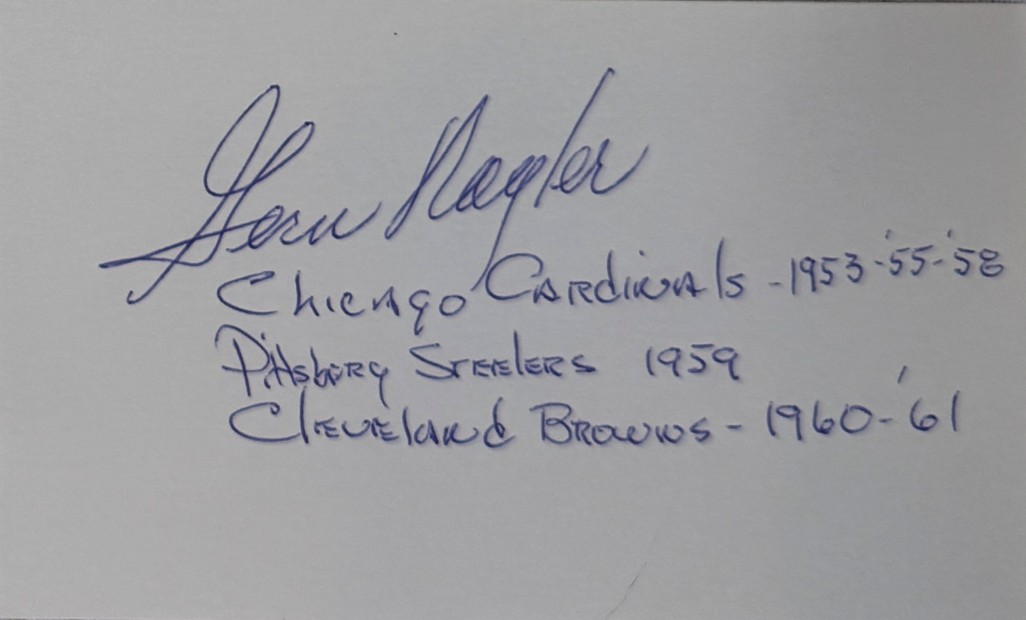 Gern Nagler
Chicago Cardinals - 1953-'55-'58
Pittsburg Steelers 1959
Cleveland Browns - 1960-'61